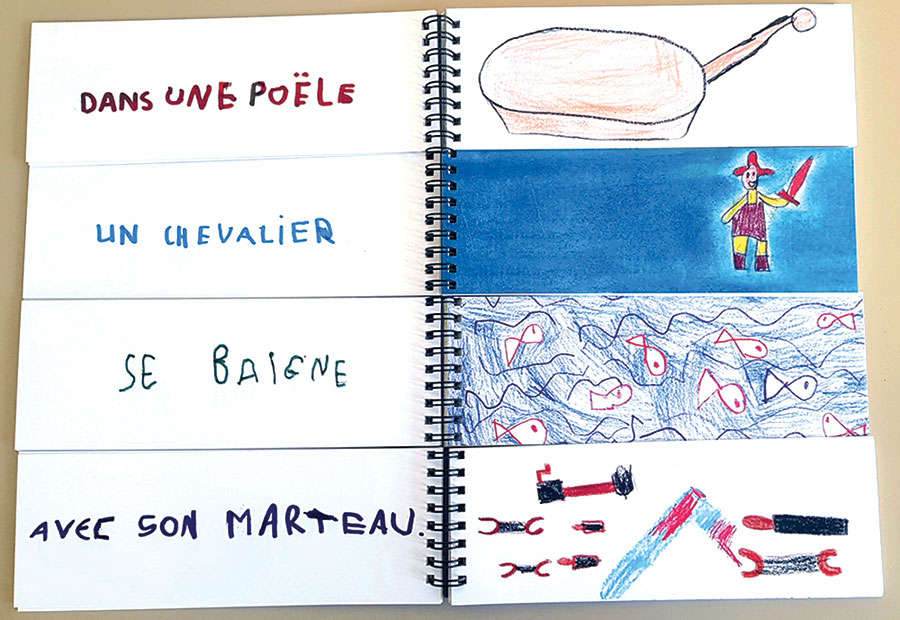 DANS UNE POËLE
UN CHEVALIER
SE BAIGNE
AVEC SON MARTEAU.